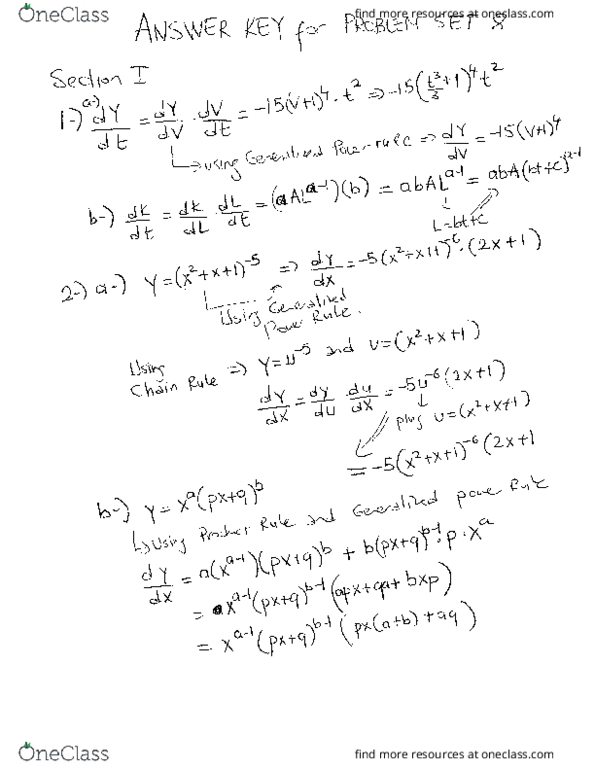 OneClass
find more resources at oneclass.com
ANSWER KEY for PROBLEM SET X
Section I
1-) a-) dY/dt = dY/dV · dV/dt = -15(V+1)^4 · t^2 => -15(t^3/3 + 1)^4 t^2
using Generalized Power-rule => dY/dV = -15(V+1)^4
b-) dk/dt = dk/dL · dL/dt = (aAL^(a-1))(b) = abAL^(a-1) = abA(bt+c)^(a-1)
L=bt+c
2-) a-) Y=(x^2+x+1)^-5 => dY/dx = -5(x^2+x+1)^-6 · (2x+1)
Using Generalized
Power Rule.
Using
Chain Rule => Y=u^-5 and u=(x^2+x+1)
dY/dx = dY/du · du/dx = -5u^-6 (2x+1)
plug u=(x^2+x+1)
= -5(x^2+x+1)^-6 (2x+1
b-) Y = x^a(px+q)^b
Using Product Rule and Generalized power Rule
dY/dx = a(x^(a-1))(px+q)^b + b(px+q)^(b-1) · p · x^a
= x^(a-1)(px+q)^(b-1)(apx+qa+bxp)
= x^(a-1)(px+q)^(b-1)(px(a+b)+aq)
OneClass
find more resources at oneclass.com